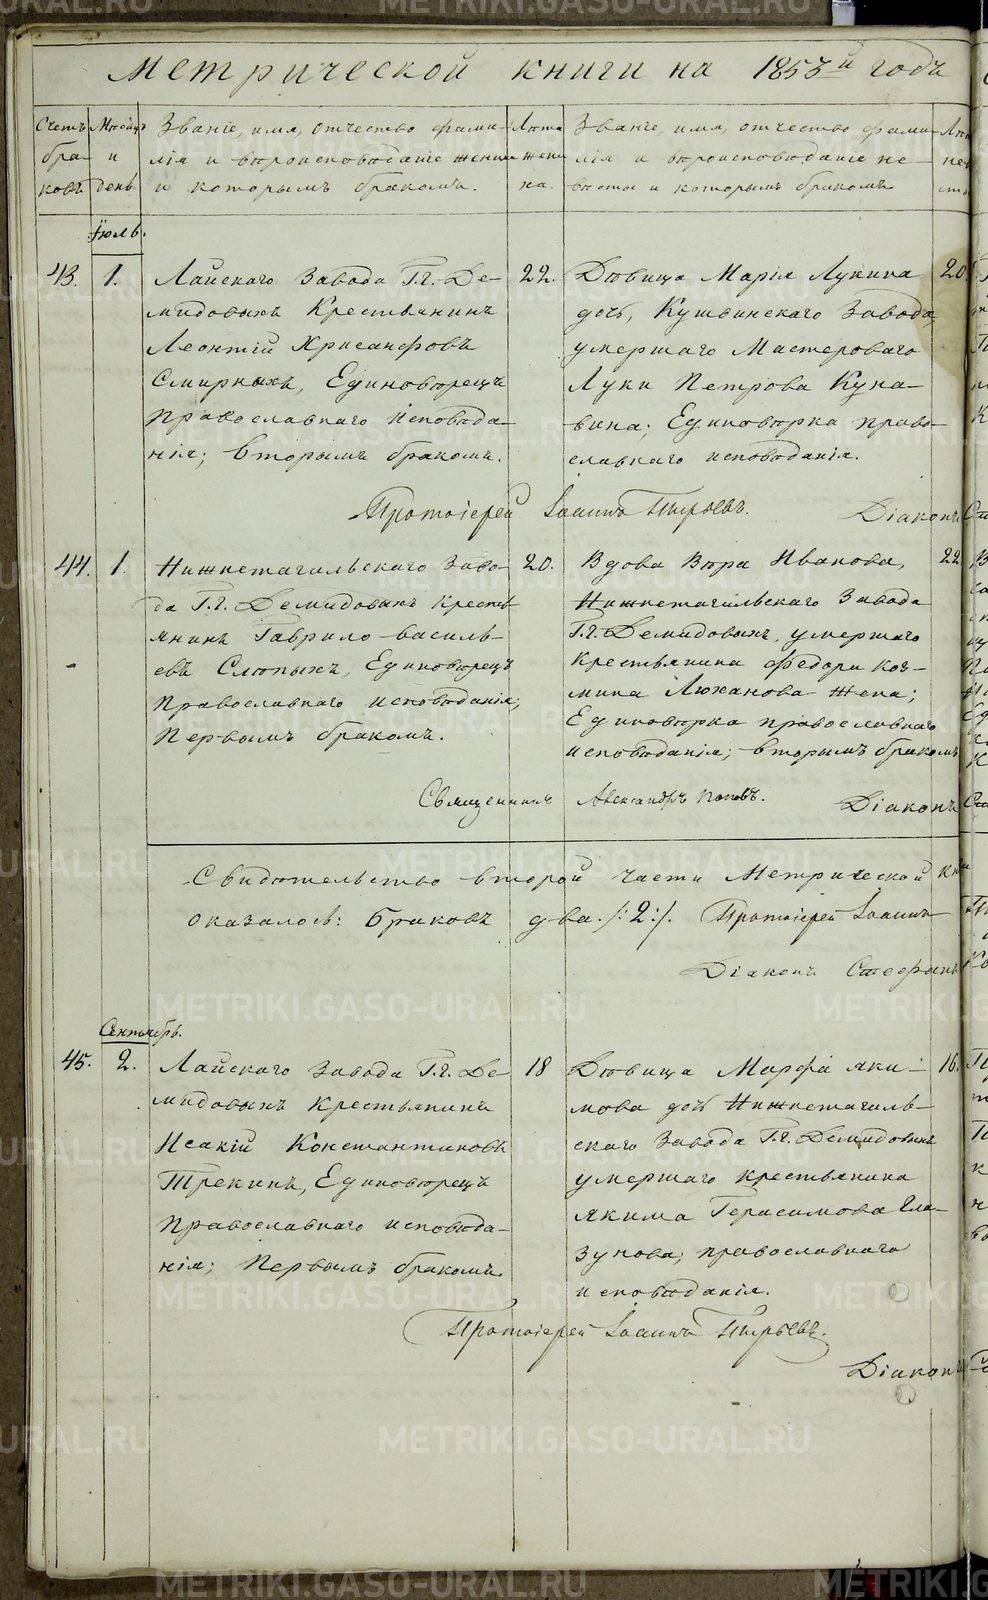 Метрической книги на 1853й годъ
Счетъ браковъ
Мѣсяцъ и день
Званіе, имя, отчество фами-
лія и вѣроисповѣданіе жениха
и которымъ бракомъ.
Лѣта жени-
ха.
Званіе, имя, отчество фами-
лія и вѣроисповѣданіе не-
вѣсты и которымъ бракомъ
Іюль.
43. 1. Лайскаго Завода Г.г. Де-
мидовыхъ Крестьянинъ
Леонтій Хрисанфовъ
Смирныхъ, Единовѣрецъ
Православнаго исповѣда-
нія; Вторымъ бракомъ.
22.
Дѣвица Марія Лукина
дочь, Кушвинскаго Завода,
умершаго Мастероваго
Луки Петрова Куна-
вина; Единовѣрка право-
славнаго исповѣданія.
20.
Протоіерей Іоаннъ Пырьевъ.
Діаконъ
44. 1. Нижнетагильскаго Заво-
да Г.г. Демидовыхъ Кресть-
янинъ Гаврило Василь-
евъ Слѣпыхъ, Единовѣрецъ
Православнаго исповѣданія;
Первымъ бракомъ.
20.
Вдова Вѣра Иванова,
Нижнетагильскаго Завода
Г.г. Демидовыхъ, умершаго
Крестьянина Федора Коз-
мина Ляханова жена;
Единовѣрка православнаго
исповѣданія; вторымъ бракомъ
22
Священникъ Александръ Поповъ.
Діаконъ
Свидѣтельство второй части Метрической
оказалось: Браковъ два /:2:/. Протоіерей Іоаннъ
Діаконъ Стефанъ
Сентябрь.
45. 2. Лайскаго Завода Г.г. Де-
мидовыхъ Крестьянинъ
Исакій Константиновъ
Трекинъ, Единовѣрецъ
Православнаго исповѣда-
нія; Первымъ бракомъ.
18
Дѣвица Марфа Яки-
мова дочь Нижнетагиль-
скаго Завода Г.г. Демидовыхъ
умершаго крестьянина
Якима Герасимова Гла-
зунова; православнаго
исповѣданія.
16.
Протоіерей Іоаннъ Пырьевъ.
Діаконъ
METRIKI.GASO-URAL.RU